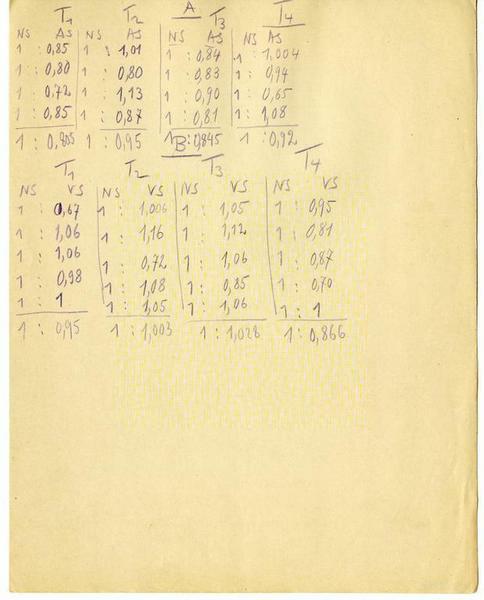 A
T1 T2 T3 T4
NS AS NS AS NS AS NS AS
1 : 0,85 1 : 1,01 1 : 0,84 1 : 1,004
1 : 0,80 1 : 0,80 1 : 0,83 1 : 0,94
1 : 0,72 1 : 1,13 1 : 0,90 1 : 0,65
1 : 0,85 1 : 0,87 1 : 0,81 1 : 1,08
1 : 0,805 1 : 0,95 1 : 0,845 1 : 0,92
B
T1 T2 T3 T4
NS VS NS VS NS VS NS VS
1 : 0,67 1 : 1,006 1 : 1,05 1 : 0,95
1 : 1,06 1 : 1,16 1 : 1,12 1 : 0,81
1 : 1,06 1 : 0,72 1 : 1,06 1 : 0,87
1 : 0,98 1 : 1,08 1 : 0,85 1 : 0,70
1 : 1 1 : 1,05 1 : 1,06 1 : 1
1 : 0,95 1 : 1,003 1 : 1,028 1 : 0,866